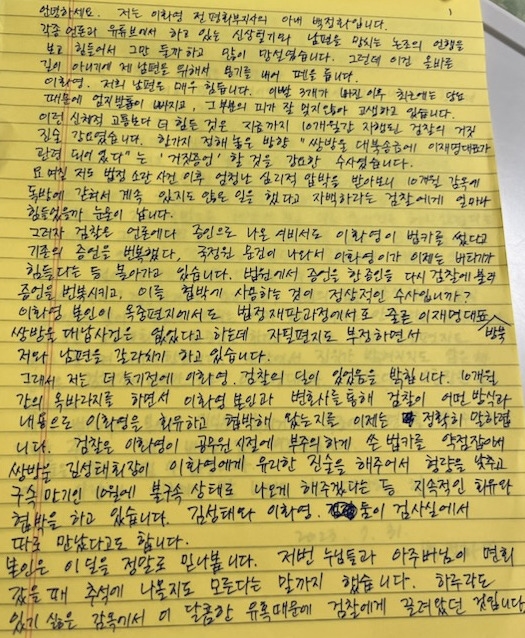 안녕하세요. 저는 이화영 전 평화부지사의 아내 백정화입니다.
1
각종 언론과 유튜브에서 하고 있는 신상털기와 남편을 망치는 논조의 언행을
보고 힘들어서 그만 둘까 하고 많이 망설였습니다. 그런데 이건 올바른
길이 아니기에 제 남편을 위해서 용기를 내어 펜을 듭니다.
이화영. 저희 남편은 매우 힘듭니다. 이빨 3개가 빠진 이후 최근에는 당뇨
때문에 엄지발톱이 빠지고, 그 부분의 피가 잘 멎지않아 고생하고 있습니다.
이런 신체적 고통보다 더 힘든 것은 지금까지 10개월간 자행된 검찰의 거짓
진술 강요였습니다. 한가지 정해 놓은 방향 "쌍방울 대북송금에 이재명대표가
관련 되어 있다"는 '거짓증언' 할 것을 강요한 수사였습니다.
요 며칠 저도 법정 소란 사건 이후 엄청난 심리적 압박을 받아보니 10개월 감옥에
독방에 갇혀서 계속 있지도 않은 일을 했다고 자백하라는 검찰에게 얼마나
힘들었을까 눈물이 납니다.
그러자 검찰은 언론에다 증인으로 나온 여비서도 이화영이 법카를 썼다고
기존의 증언을 번복했다, 국정원 문건이 나와서 이화영이가 이제는 버티기가
힘들다는 등 몰아가고 있습니다. 법원에서 증언을 한 증인을 다시 검찰에 불러
증언을 번복시키고, 이를 협박에 사용하는 것이 정상적인 수사입니까?
이화영 본인이 옥중편지에서도 법정 재판과정에서도 줄곧 이재명대표
쌍방울 대납사건은 없었다고 하는데 자필편지도 부정하면서 방북
저와 남편을 갈라치기 하고 있습니다.
그래서 저는 더 늦기전에 이화영. 검찰의 딜이 있었음을 밝힙니다. 10개월
간의 옥바라지를 하면서 이화영 본인과 변호사를 통해 검찰이 어떤 방식과
내용으로 이화영을 회유하고 협박해 왔는지를 이제는 정확히 말하렵
니다. 검찰은 이화영이 공무원 시절에 부주의하게 쓴 법카를 약점잡아서
쌍방울 김성태회장이 이화영에게 유리한 진술을 해주어서 형량을 낮추고
구속 만기인 10월에 불구속 상태로 나오게 해주겠다는 등 지속적인 회유와
협박을 하고 있습니다. 김성태와 이화영. 둘이 검사실에서
따로 만났다고도 합니다.
본인은 이 딜을 정말로 만나봅니다. 저번 누님들과 아주버님이 면회
갔을 때 추석에 나올지도 모른다는 말까지 했습니다. 하루라도
있기 싫은 감옥에서 이 달콤한 유혹때문에 검찰에게 끌려왔던 것입니다